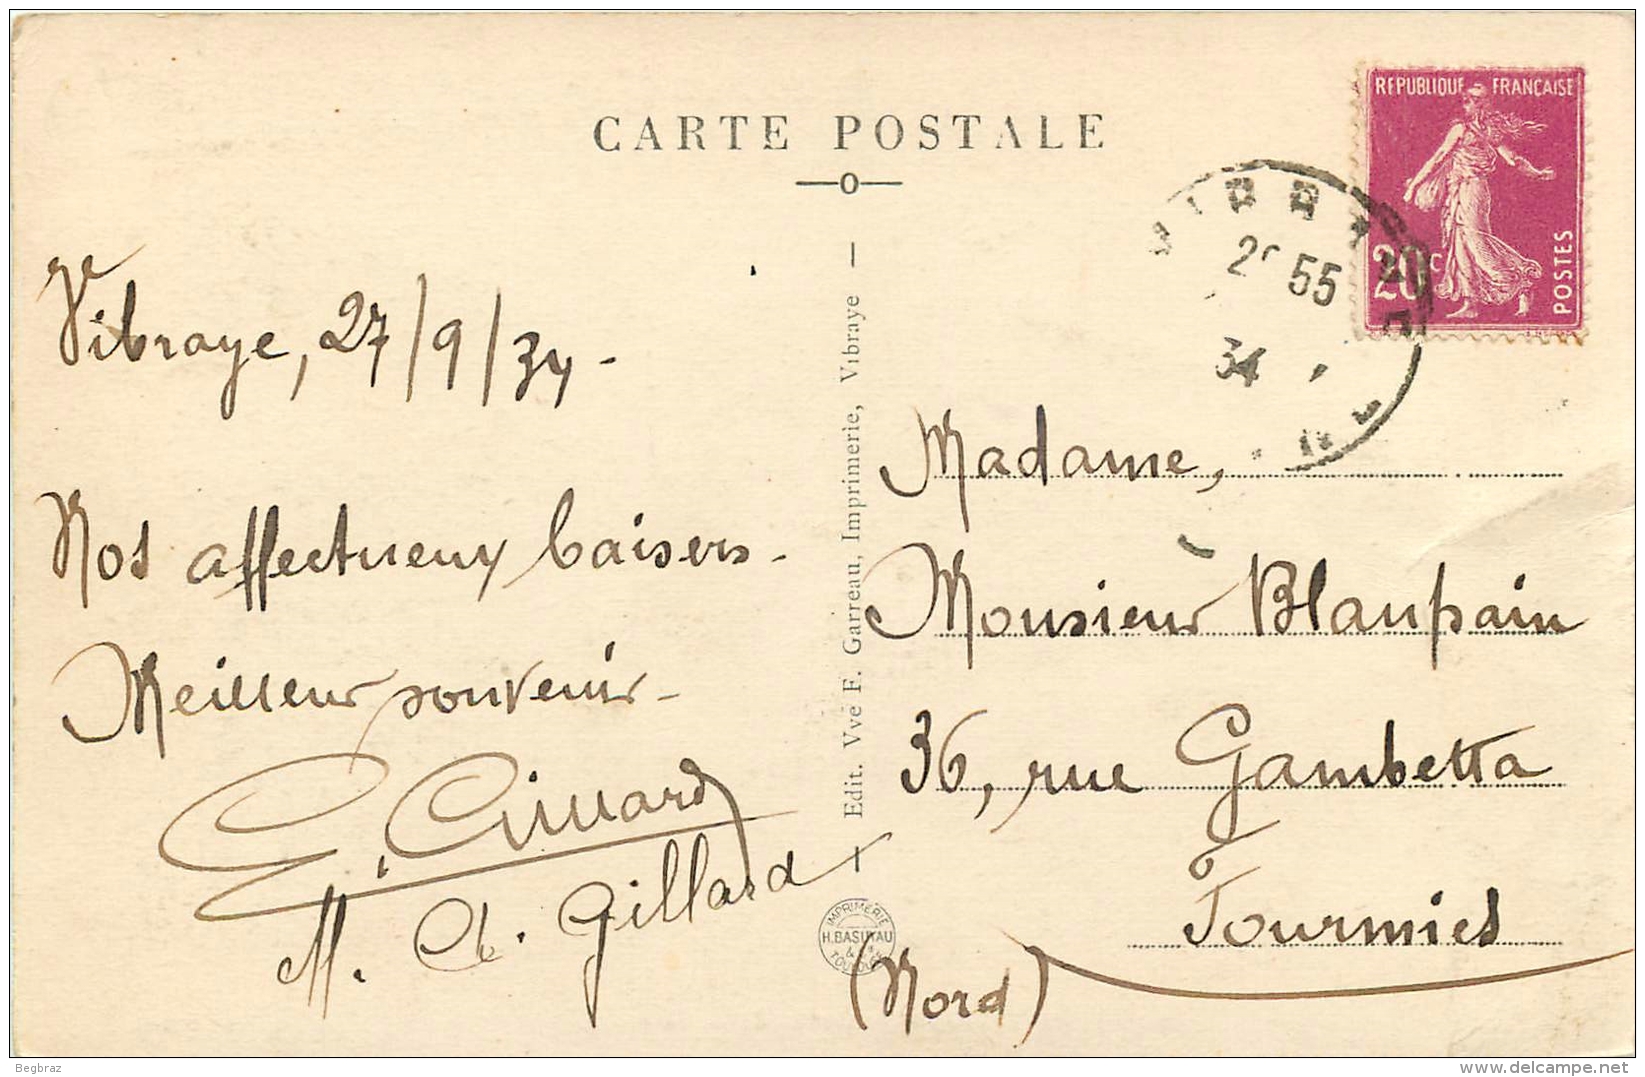 CARTE POSTALE
REPUBLIQUE FRANÇAISE
20c
POSTES
55
34
Vibraye, 27/9/34 -
Nos affectueux baisers -
Meilleur souvenir -
Gillard
M. Ch. Gillard
Edit. Vve F. Garreau, Imprimerie, Vibraye
IMPRIMERIE
H. BASUYAU
& Cie
TOULOUSE
Madame,
Monsieur Blaupain
36, rue Gambetta
Fourmies
(Nord)
Begbraz
delcampe.net